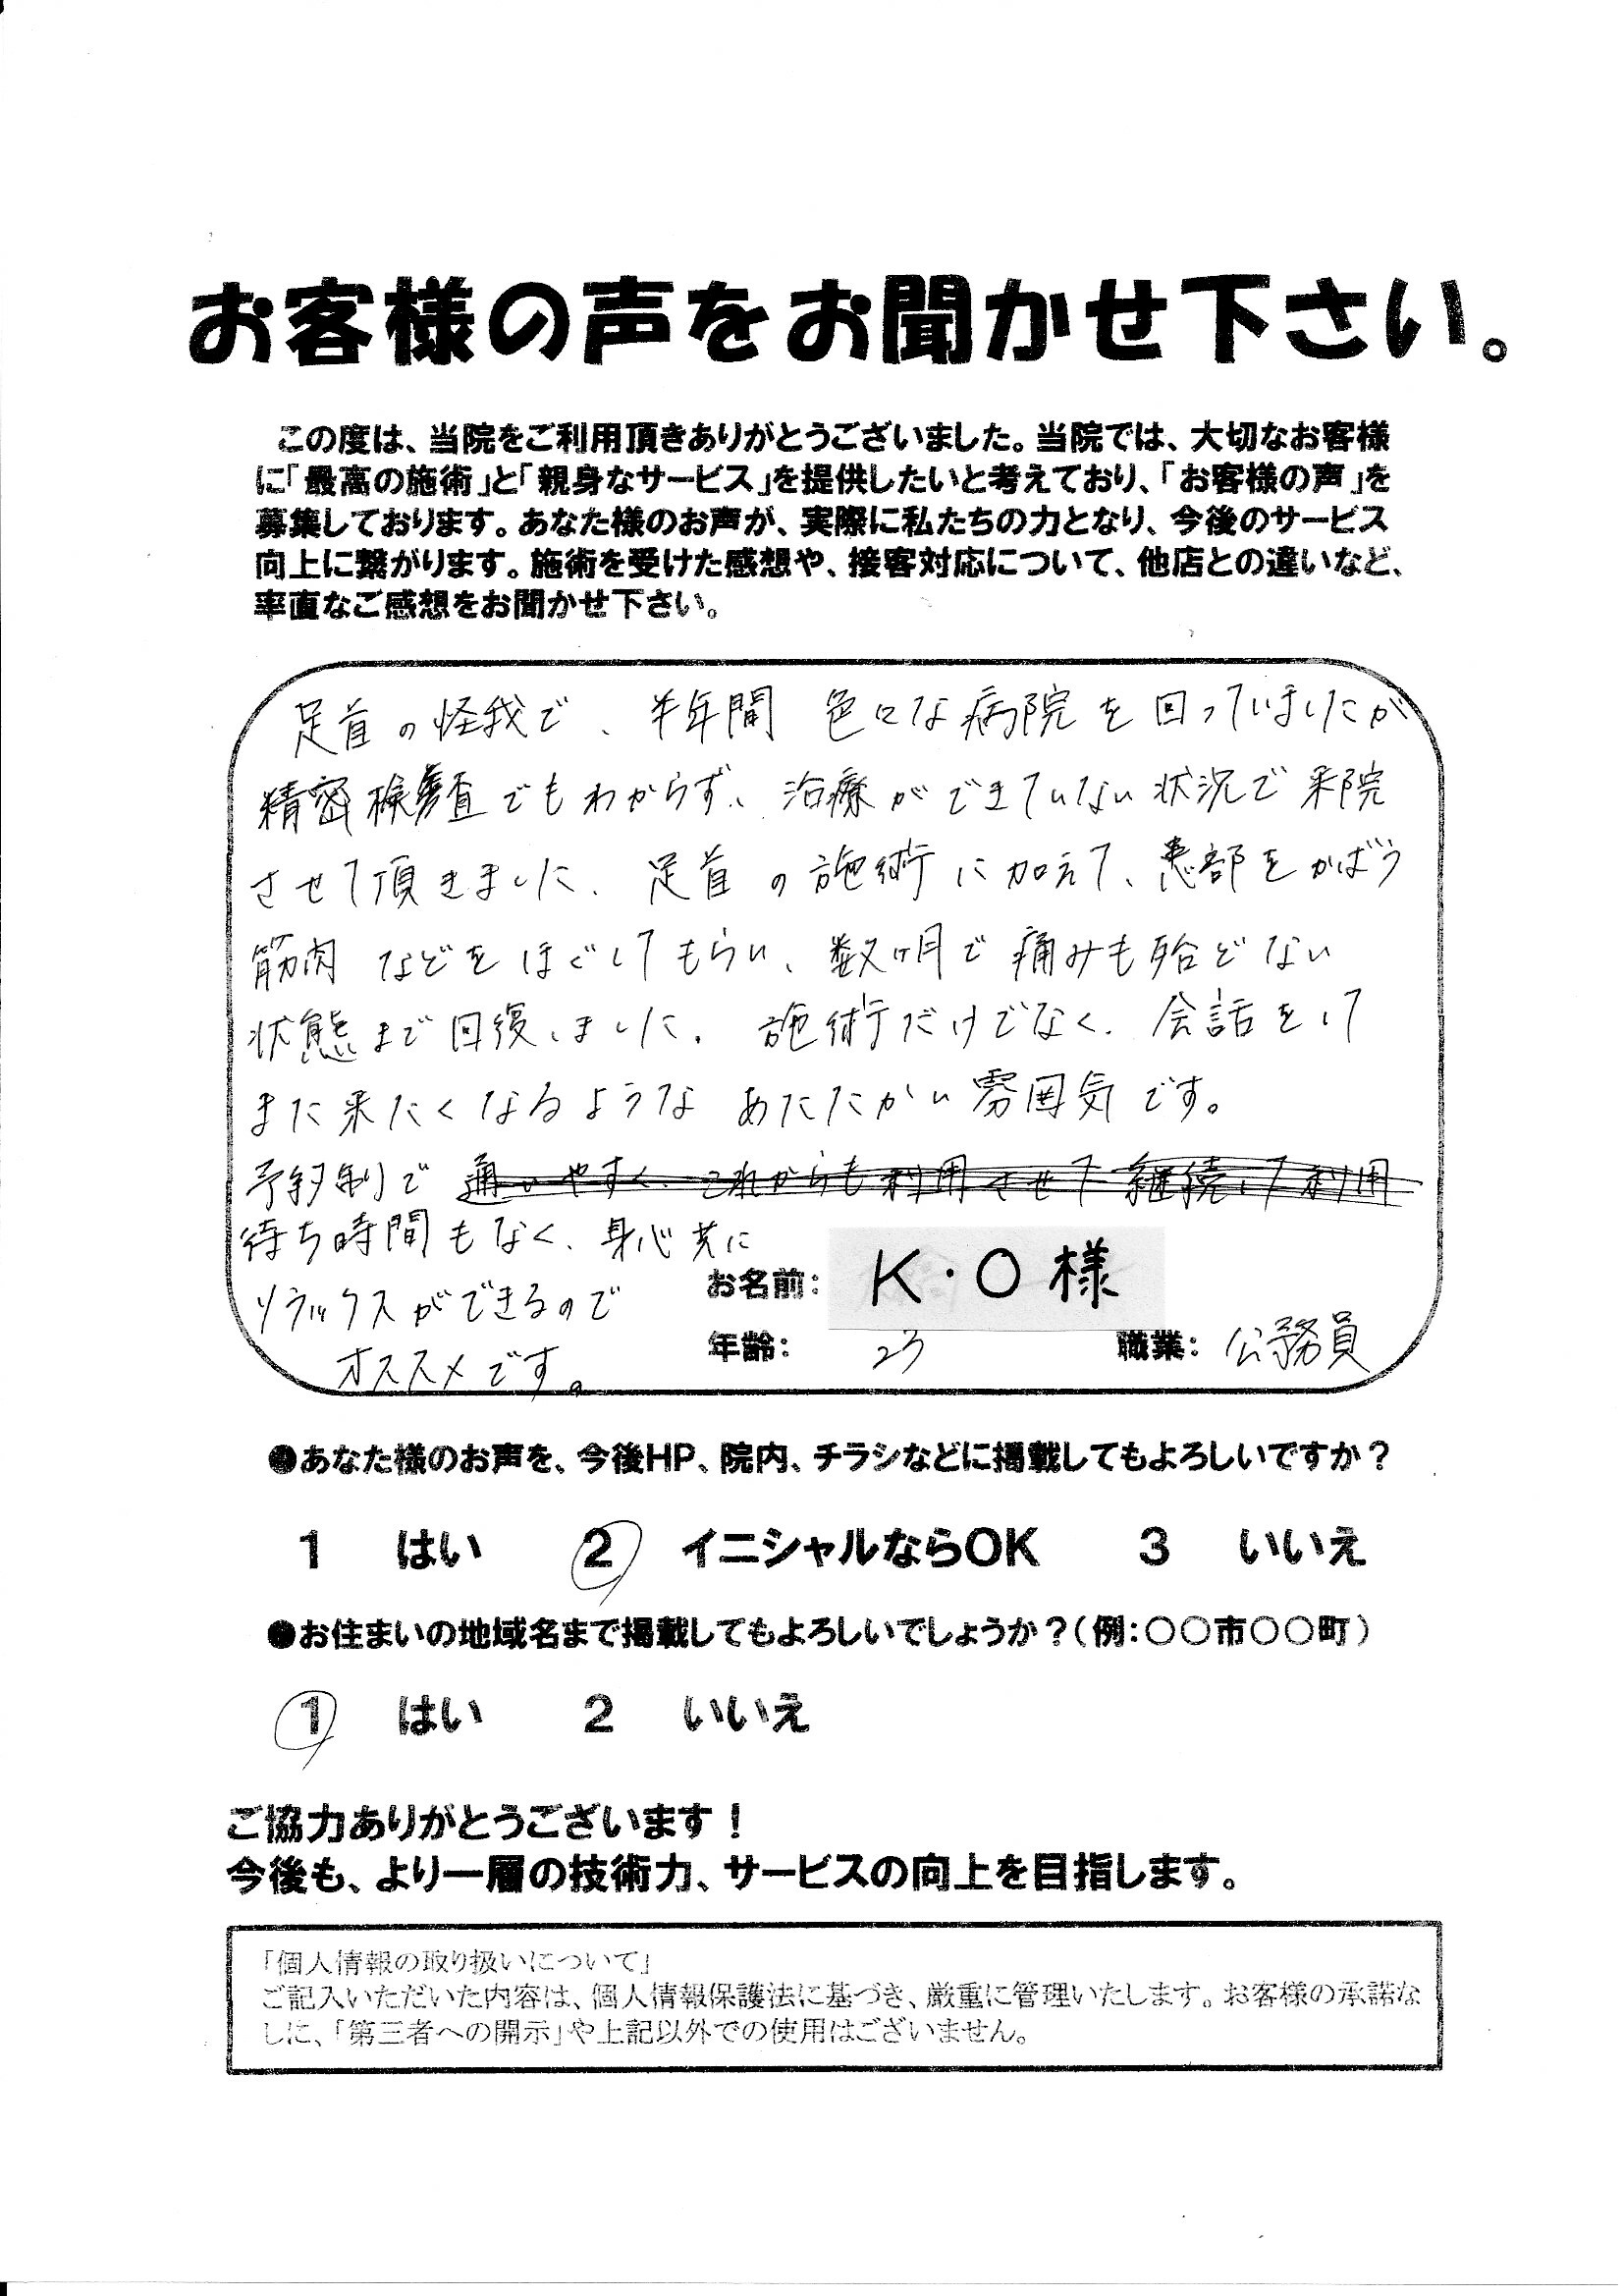 お客様の声をお聞かせ下さい。
この度は、当院をご利用頂きありがとうございました。当院では、大切なお客様
に「最高の施術」と「親身なサービス」を提供したいと考えており、「お客様の声」を
募集しております。あなた様のお声が、実際に私たちの力となり、今後のサービス
向上に繋がります。施術を受けた感想や、接客対応について、他店との違いなど、
率直なご感想をお聞かせ下さい。
足首の怪我で、半年間 色々な病院を回っていましたが
精密検査でもわからず、治療ができていない状況で来院
させて頂きました。足首の施術に加えて、患部をかばう
筋肉などをほぐしてもらい、数ヶ月で痛みも殆どない
状態まで回復しました。施術だけでなく、会話をして
また来たくなるようなあたたかい雰囲気です。
予約制で 通いやすく、これからも利用させて 継続して利用
待ち時間もなく、身心共に
リラックスができるので
オススメです。
お名前: K・O様
年齢: 23 職業: 公務員
●あなた様のお声を、今後HP、院内、チラシなどに掲載してもよろしいですか？
1 はい 2 イニシャルならOK 3 いいえ
●お住まいの地域名まで掲載してもよろしいでしょうか？(例:〇〇市〇〇町)
1 はい 2 いいえ
ご協力ありがとうございます！
今後も、より一層の技術力、サービスの向上を目指します。
「個人情報の取り扱いについて」
ご記入いただいた内容は、個人情報保護法に基づき、厳重に管理いたします。お客様の承諾な
しに、「第三者への開示」や上記以外での使用はございません。